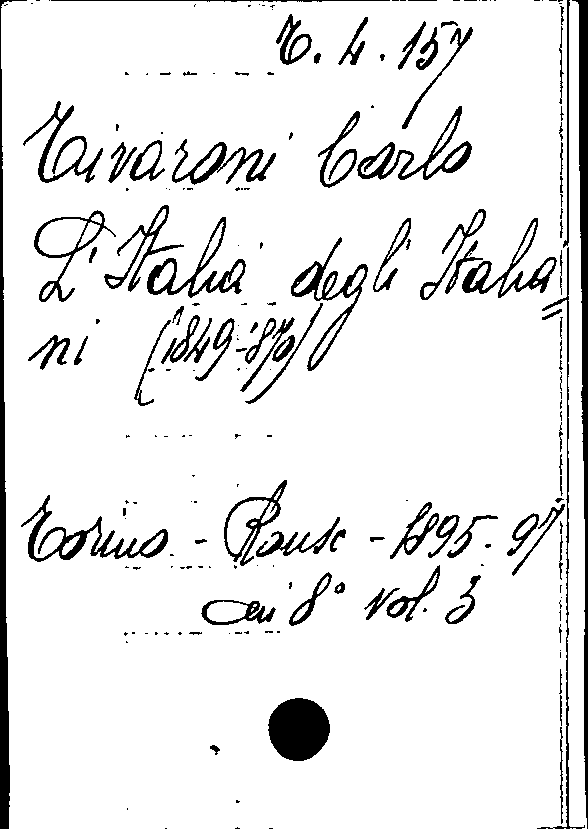 T. 4. 157
Tivaroni Carlo
L'Italia degli Italia=
ni (1849-'870)
Torino - Roux - 1895. 97
in 8° vol. 3